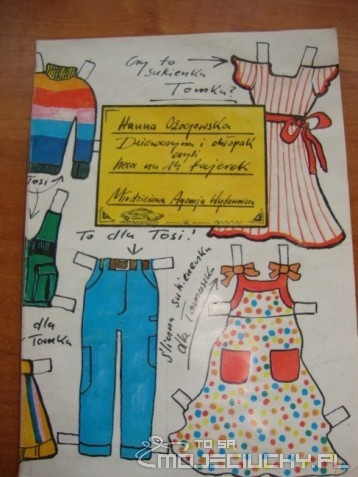 Czy to
sukienka
Tomka?
Hanna Ożogowska
Dziewczyna i chłopak
czyli
heca na 14 fajerek
Młodzieżowa Agencja Wydawnicza
Tosi!
To dla Tosi!
dla
Tomka
śliczna sukieneczka
dla Tomaszka
TO SĄ
MOJECIUCHY.PL